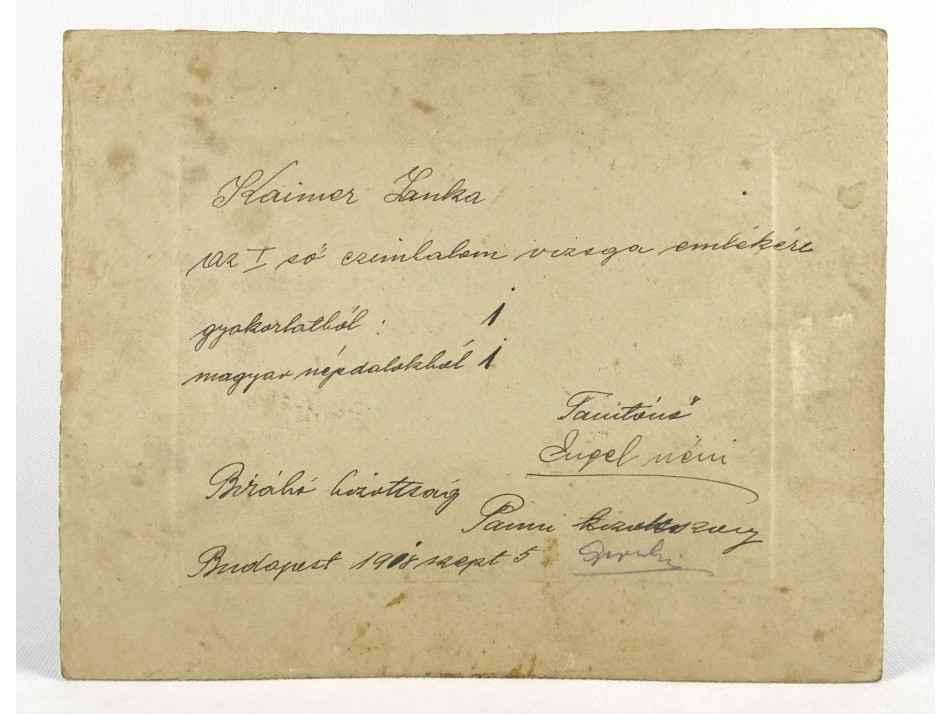 Kaimer Janka
az I ső czimbalom vizsga emlékére
gyakorlatból : 1
magyar népdalokból 1
Tanitónő
Engel néni
Biráló bizottság
Panni
Budapest 1918 szept 5